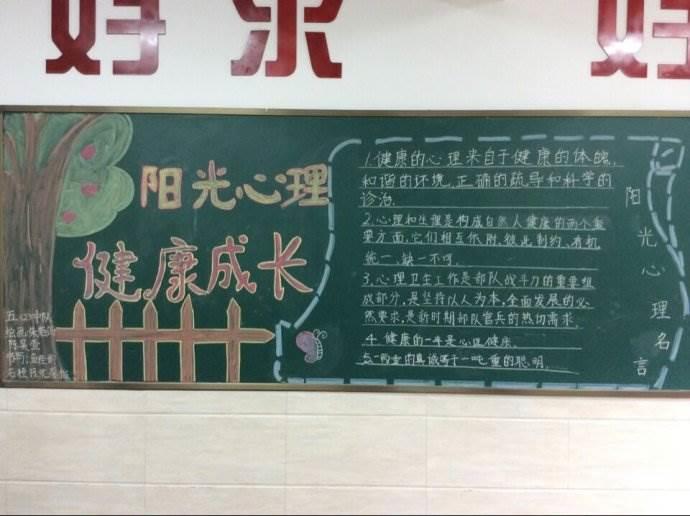 好
乐
好
阳光心理
健康成长
五(2)中队
1.健康的心理来自于健康的体魄,
和谐的环境,正确的疏导和科学的
诊治.
2.心理和生理是构成自然人健康的两个重
要方面,它们相互依附,彼此制约、有机
统一,缺一不可.
3.心理卫生工作是部队战斗力的重要组
成部分,是坚持以人为本,全面发展的必
然要求,是新时期部队官兵的热切需求.
4.健康的一半是心理健康.
5.一两重的真诚等于一吨重的聪明.
阳光心理名言